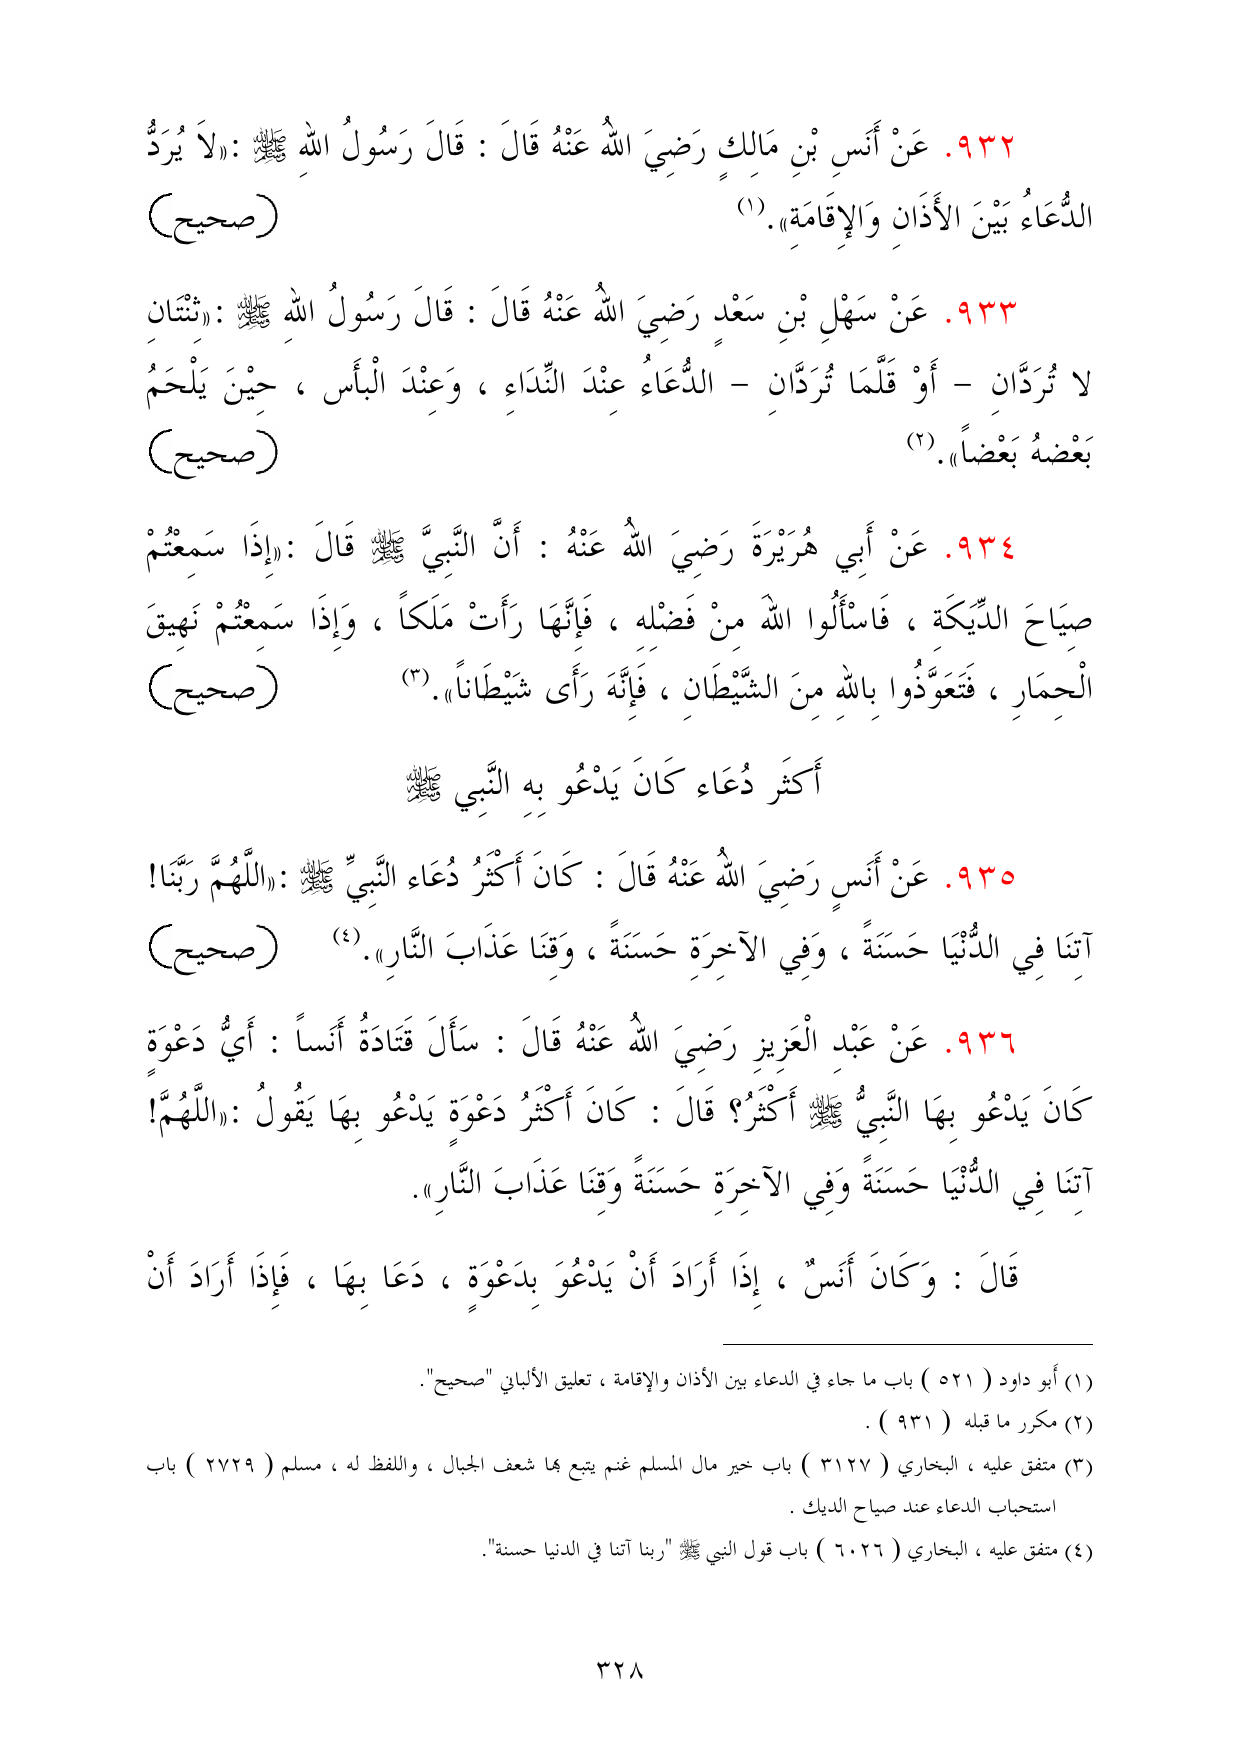 ٩٣٢. عَنْ أَنَسِ بْنِ مَالِكٍ رَضِيَ اللهُ عَنْهُ قَالَ : قَالَ رَسُولُ اللهِ ﷺ :«لاَ يُرَدُّ
الدُّعَاءُ بَيْنَ الأَذَانِ وَالإِقَامَةِ».(١) (صحيح)
٩٣٣. عَنْ سَهْلِ بْنِ سَعْدٍ رَضِيَ اللهُ عَنْهُ قَالَ : قَالَ رَسُولُ اللهِ ﷺ :«ثِنْتَانِ
لا تُرَدَّانِ – أَوْ قَلَّمَا تُرَدَّانِ – الدُّعَاءُ عِنْدَ النِّدَاءِ ، وَعِنْدَ الْبأَسِ ، حِيْنَ يَلْحَمُ
بَعْضهُ بَعْضاً».(٢) (صحيح)
٩٣٤. عَنْ أَبِي هُرَيْرَةَ رَضِيَ اللهُ عَنْهُ : أَنَّ النَّبِيَّ ﷺ قَالَ :«إِذَا سَمِعْتُمْ
صِيَاحَ الدِّيَكَةِ ، فَاسْأَلُوا اللهَ مِنْ فَضْلِهِ ، فَإِنَّهَا رَأَتْ مَلَكاً ، وَإِذَا سَمِعْتُمْ نَهِيقَ
الْحِمَارِ ، فَتَعَوَّذُوا بِاللهِ مِنَ الشَّيْطَانِ ، فَإِنَّهَ رَأَى شَيْطَاناً».(٣) (صحيح)
أَكثَر دُعَاء كَانَ يَدْعُو بِهِ النَّبِي ﷺ
٩٣٥. عَنْ أَنَسٍ رَضِيَ اللهُ عَنْهُ قَالَ : كَانَ أَكْثَرُ دُعَاء النَّبِيِّ ﷺ :«اللَّهُمَّ رَبَّنَا!
آتِنَا فِي الدُّنْيَا حَسَنَةً ، وَفِي الآخِرَةِ حَسَنَةً ، وَقِنَا عَذَابَ النَّارِ».(٤) (صحيح)
٩٣٦. عَنْ عَبْدِ الْعَزِيزِ رَضِيَ اللهُ عَنْهُ قَالَ : سَأَلَ قَتَادَةُ أَنَساً : أَيُّ دَعْوَةٍ
كَانَ يَدْعُو بِهَا النَّبِيُّ ﷺ أَكْثَرُ؟ قَالَ : كَانَ أَكْثَرُ دَعْوَةٍ يَدْعُو بِهَا يَقُولُ :«اللَّهُمَّ!
آتِنَا فِي الدُّنْيَا حَسَنَةً وَفِي الآخِرَةِ حَسَنَةً وَقِنَا عَذَابَ النَّارِ».
قَالَ : وَكَانَ أَنَسٌ ، إِذَا أَرَادَ أَنْ يَدْعُوَ بِدَعْوَةٍ ، دَعَا بِهَا ، فَإِذَا أَرَادَ أَنْ
(١) أَبو داود ( ٥٢١ ) باب ما جاء في الدعاء بين الأذان والإقامة ، تعليق الألباني "صحيح".
(٢) مكرر ما قبله ( ٩٣١ ) .
(٣) متفق عليه ، البخاري ( ٣١٢٧ ) باب خير مال المسلم غنم يتبع بها شعف الجبال ، واللفظ له ، مسلم ( ٢٧٢٩ ) باب
استحباب الدعاء عند صياح الديك .
(٤) متفق عليه ، البخاري ( ٦٠٢٦ ) باب قول النبي ﷺ "ربنا آتنا في الدنيا حسنة".
٣٢٨